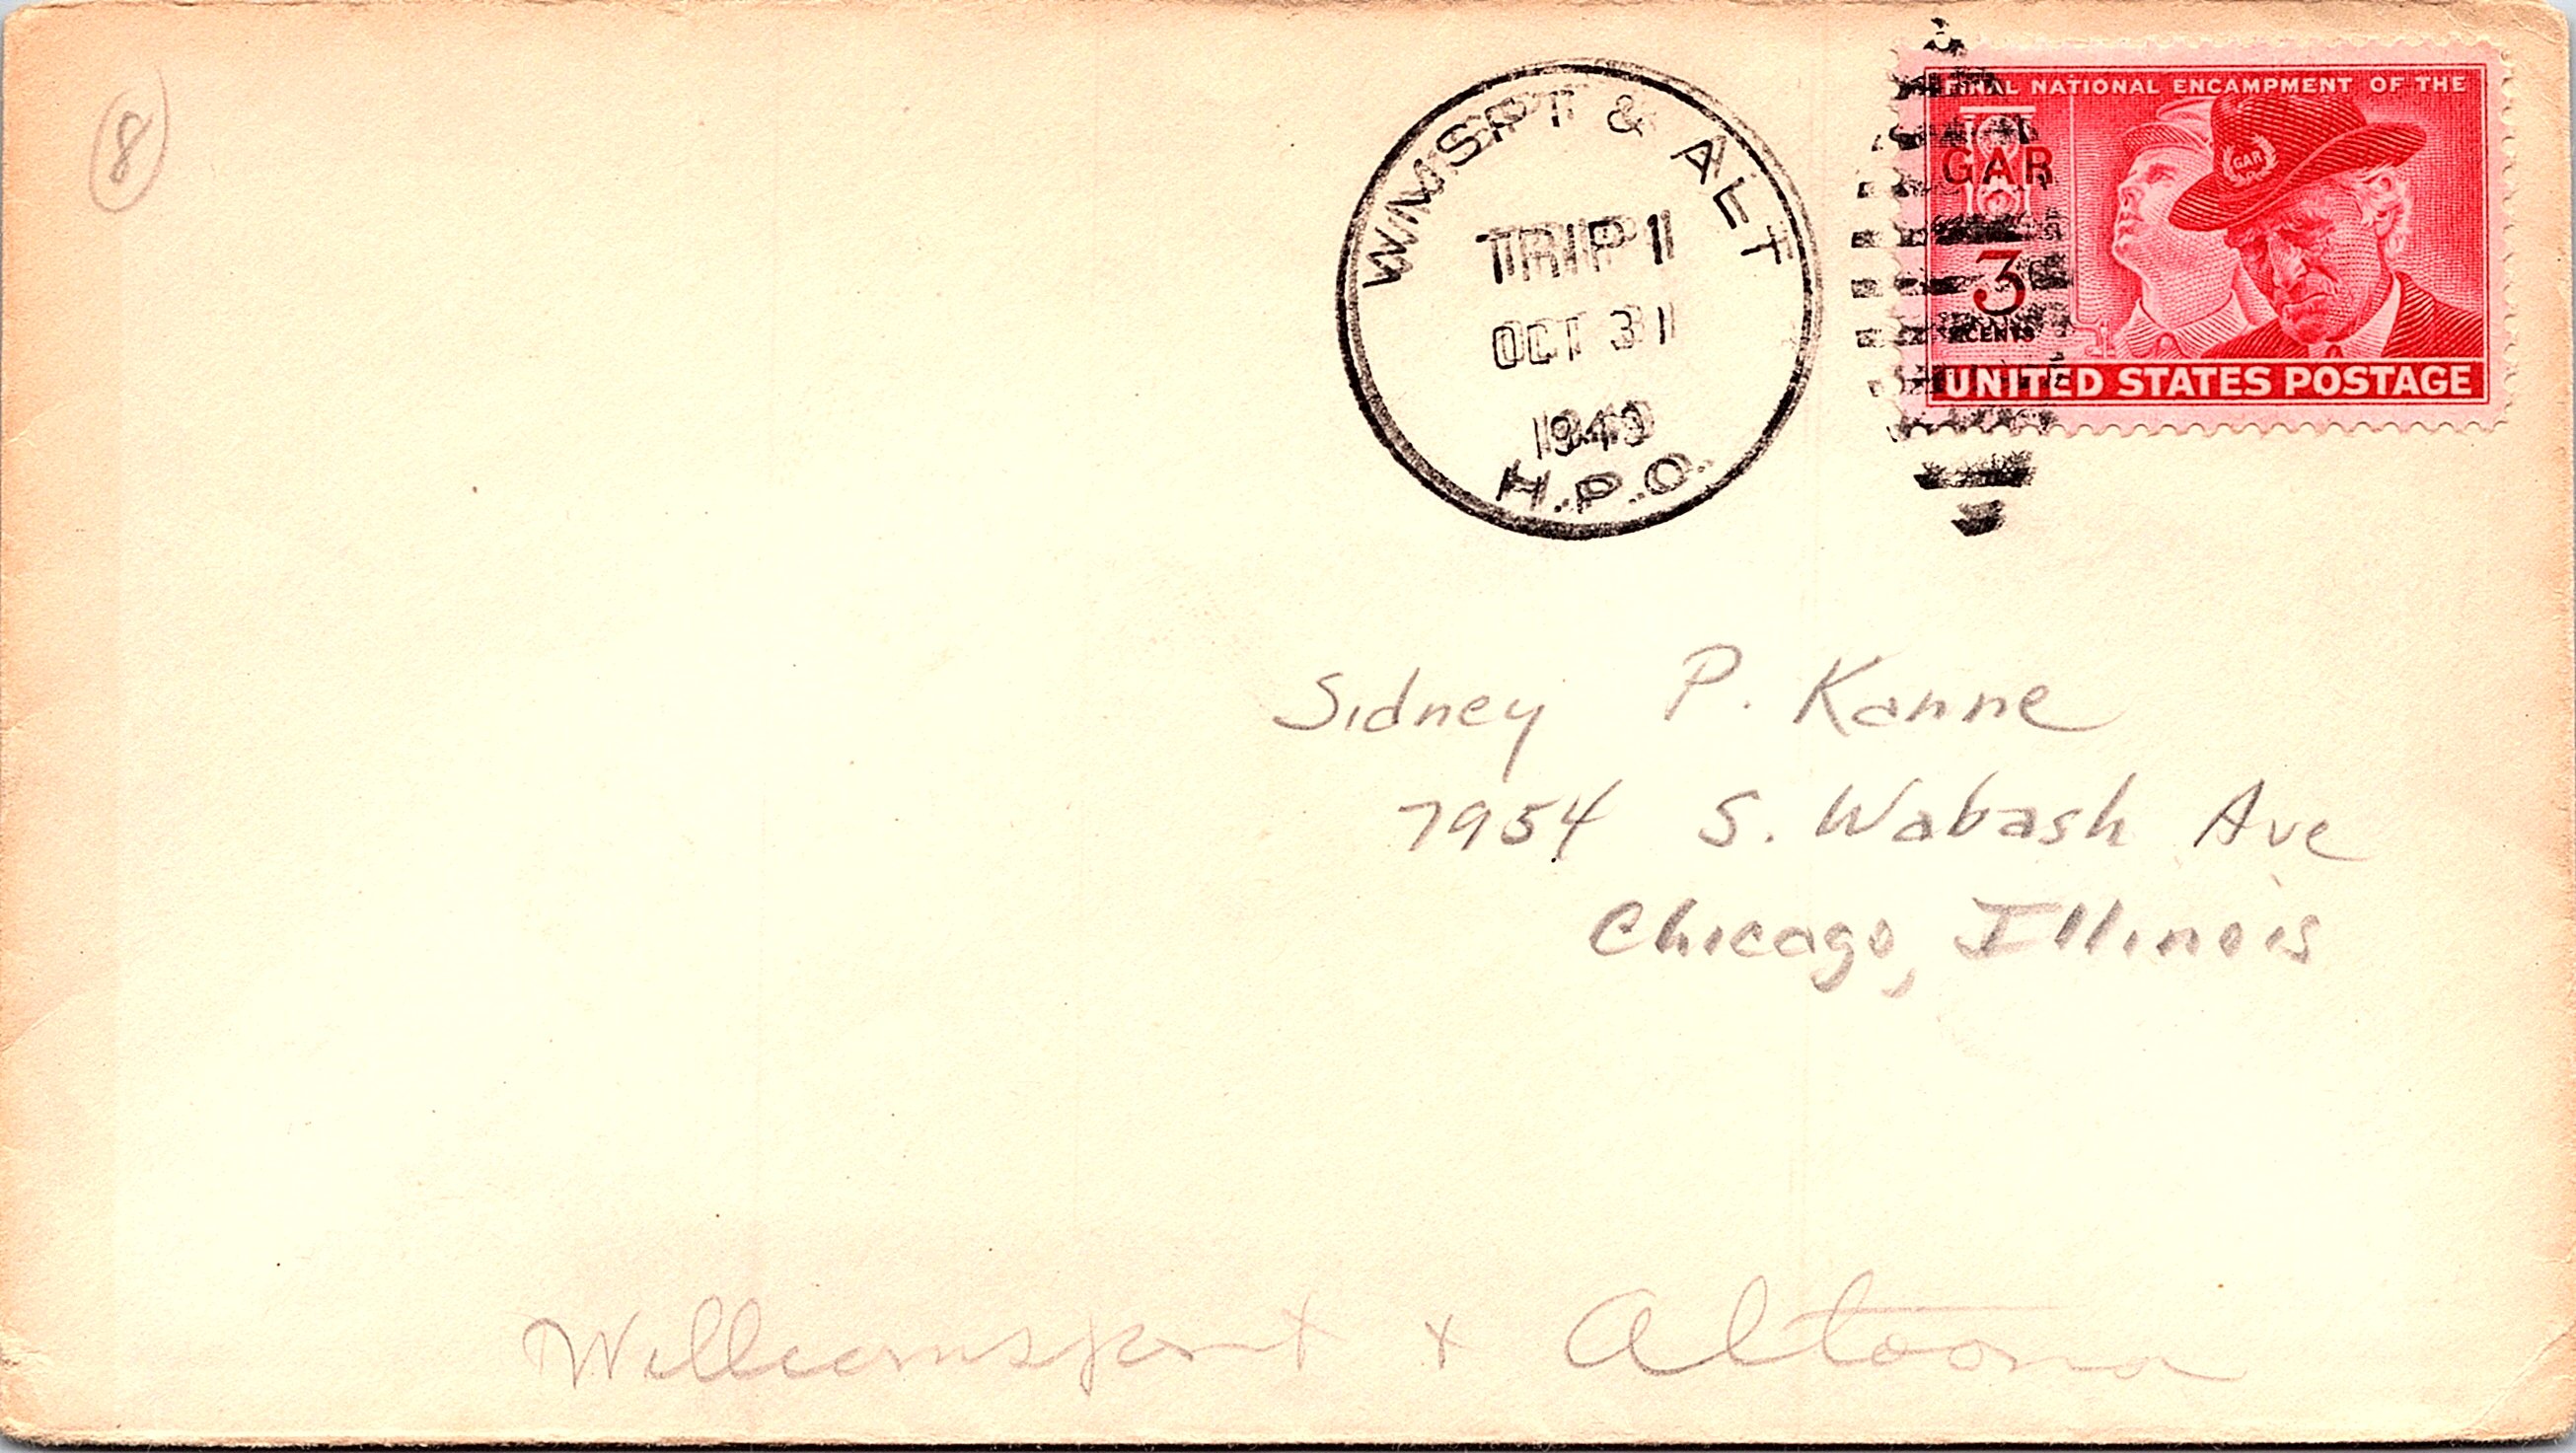 8
WMSPT & ALT
TRIP 1
OCT 31
1949
H.P.O.
FINAL NATIONAL ENCAMPMENT OF THE
GAR
GAR
3
CENTS
UNITED STATES POSTAGE
Sidney P. Kanne
7954 S. Wabash Ave
Chicago, Illinois
Williamsport + Altoona